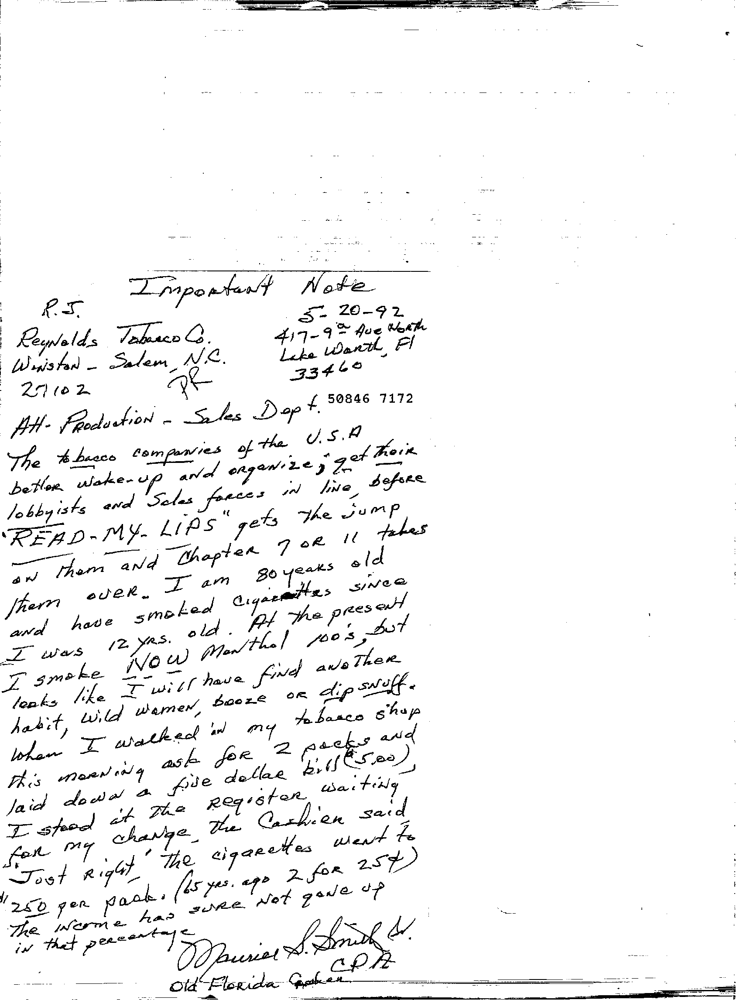 Important Note
R.J.
5-20-92
Reynolds Tobacco Co.
417-9th Ave North
Winston-Salem, N.C.
Lake Worth, Fl
27102
33460
PR
50846 7172
Att- Production - Sales Dept.
The tobacco companies of the U.S.A
better wake-up and organize; get their
lobbyists and Sales forces in line, before
"READ-MY-LIPS" gets the jump
on them and Chapter 7 or 11 takes
them over. I am 80 years old
and have smoked cigarettes since
I was 12 yrs. old. At the present
I smoke NOW Menthol 100's, but
looks like I will have find another
habit, wild women, booze or dip snuff.
When I walked in my tobacco shop
this morning ask for 2 packs and
laid down a five dollar bill ($5.00),
I stood at the register waiting
for my change, the Cashier said,
"Just Right," The cigarettes went to
$2.50 per pack. (65 yrs. ago 2 for 25¢)
The income has sure not gone up
in that percentage
S. Smith Sr.
CPA
Old Florida